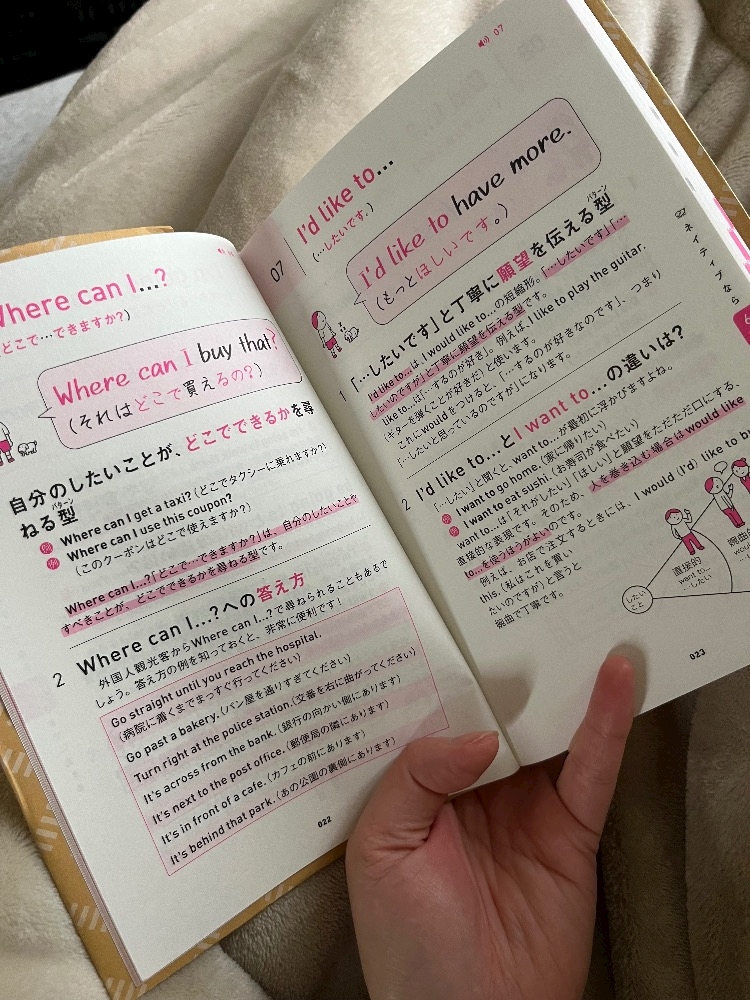 Where can I...?
どこで…できますか?)
Where can I buy that?
(それはどこで買えるの?)
自分のしたいことが、どこでできるかを尋
ねる型
パターン
例 Where can I get a taxi?(どこでタクシーに乗れますか?)
例 Where can I use this coupon?
(このクーポンはどこで使えますか?)
Where can I...?「どこで…できますか?」は、自分のしたいことや
すべきことが、どこでできるかを尋ねる型です。
2 Where can I...?への答え方
外国人観光客からWhere can I...?で尋ねられることもあるで
しょう。答え方の例を知っておくと、非常に便利です!
Go straight until you reach the hospital.
(病院に着くまでまっすぐ行ってください)
Go past a bakery.(パン屋を通りすぎてください)
Turn right at the police station.(交番を右に曲がってください)
It's across from the bank.(銀行の向かい側にあります)
It's next to the post office.(郵便局の隣にあります)
It's in front of a cafe.(カフェの前にあります)
It's behind that park.(あの公園の裏側にあります)
022
07
07
I'd like to...
(…したいです。)
I'd like to have more.
(もっとほしいです。)
「…したいです」と丁寧に願望を伝える型
パターン
1 I'd like to...は I would like to...の短縮形。「…したいです」「…
したいのですが」と丁寧に願望を伝える型です。
like to...は「…するのが好き」。例えば、I like to play the guitar.
(ギターを弾くことが好きだ)と使います。
これにwouldをつけると、「…するのが好きなのです」、つまり
「…したいと思っているのですが」になります。
2 I'd like to...とI want to...の違いは?
「…したい」と聞くと、want to...が最初に浮かびますよね。
例 I want to go home.(家に帰りたい)
例 I want to eat sushi.(お寿司が食べたい)
want to...は「それがしたい」「ほしい」と願望をただただ口にする、
直接的な表現です。そのため、人を巻き込む場合は would like
to...を使うほうがよいのです。
例えば、お店で注文するときには、I would (I'd) like to b
this.(私はこれを買い
たいのですが)と言うと
婉曲で丁寧です。
したい
こと
直接的
want to...
…したい
婉曲
wou
ネイティブなら
023